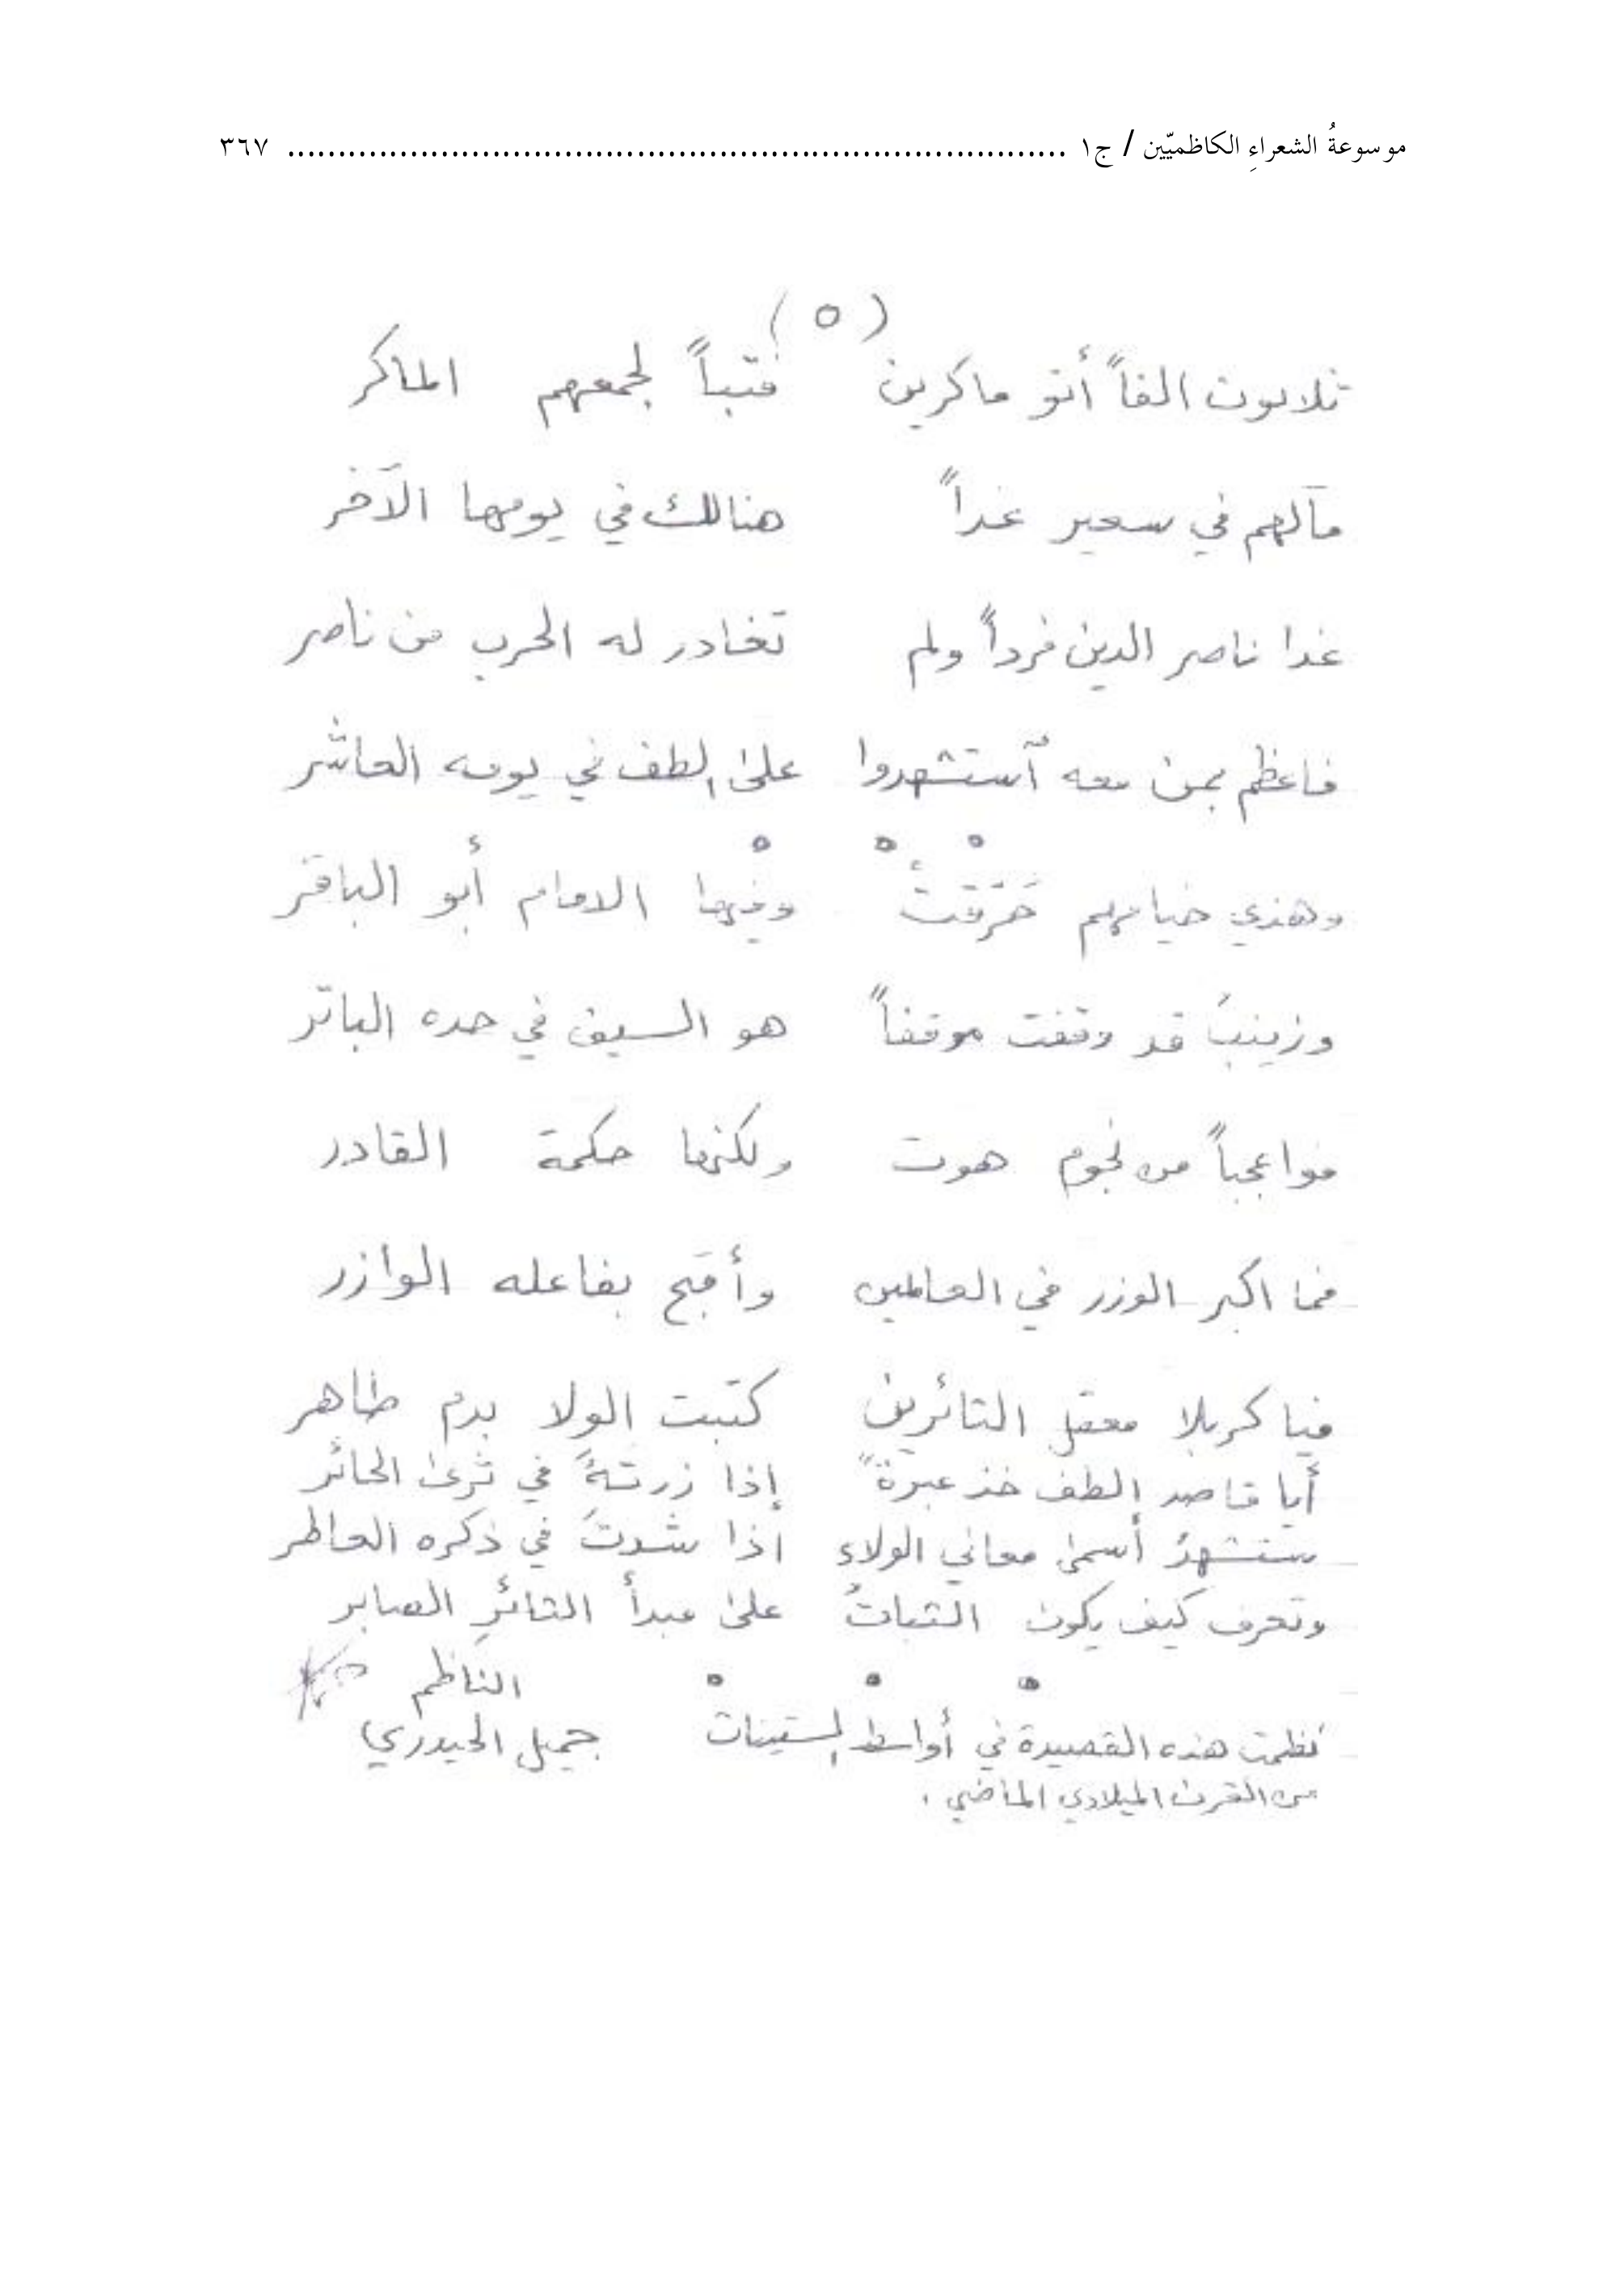 موسوعةُ الشعراءِ الكاظميّين / ج١ ........................................................................... ٣٦٧
( ٥ )
ثلاثون الفاً أتو ماكرين فتباً لجمعهم الماكر
مآلهم في سعير غداً هنالك في يومها الآخر
غدا ناصر الدين فرداً ولم تغادر له الحرب من ناصر
فاعظم بمن معه آستشهدوا على الطف في يومه العاشر
وهذي خيامهم حَرَقتْ وفيها الامام أبو الباقر
وزينبُ قد وقفت موقفاً هو السيف في حده الباتر
فواعجباً من نجوم هوت ولكنها حكمة القادر
فما اكبر الوزر في العالمين وأقبح بفاعله الوازر
فيا كربلا معقل الثائرين كتبت الولا بدم طاهر
أيا قاصد الطف خذ عبرةً إذا زرتهُ في ثرى الحائر
ستشهدُ أسمى معاني الولاء اذا شدتَ في ذكره العاطر
وتعرف كيف يكون الثباتُ على مبدأ الثائرِ الصابر
الناظم
نظمت هذه القصيدة في أواسط الستينات جميل الحيدري
من القرن الميلادي الماضي .